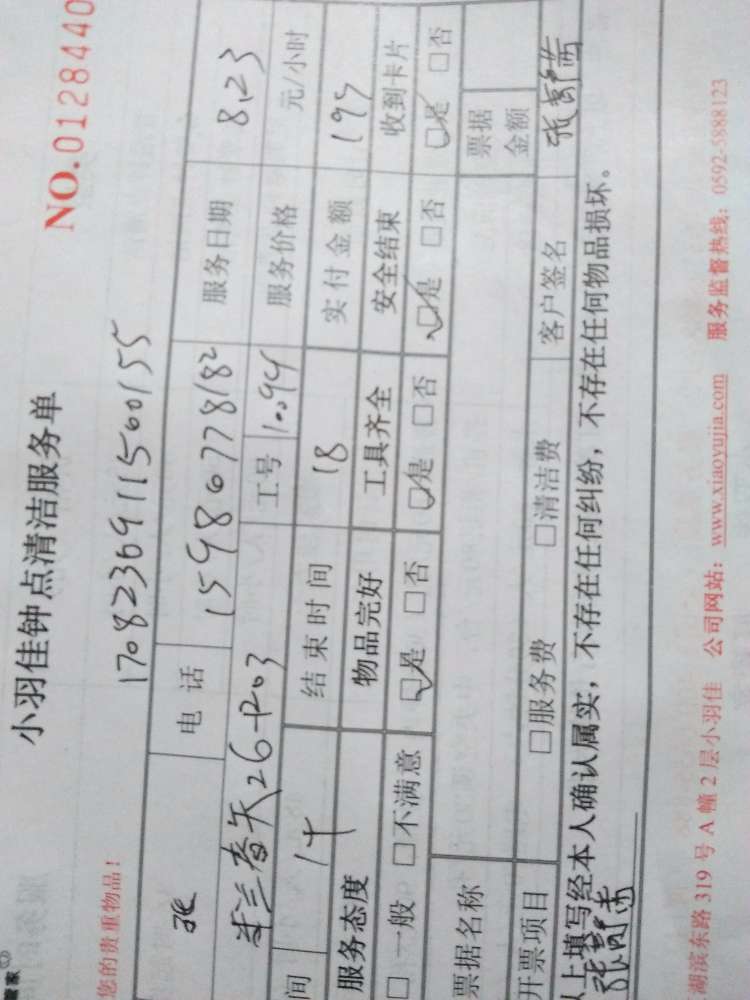 小羽佳钟点清洁服务单
NO.0128440
您的贵重物品！
1708236911500155
张 电话 159806778182 服务日期 8.23
春天26-1203 工号 1094 服务价格 元/小时
间 14 结束时间 18 实付金额 195
服务态度 物品完好 工具齐全 安全结束 收到卡片
□一般 □不满意 ☑是 □否 ☑是 □否 ☑是 □否 ☑是 □否
票据名称 票据金额
开票项目 □服务费 □清洁费 客户签名 张
上填写经本人确认属实，不存在任何纠纷，不存在任何物品损坏。
张
湖滨东路 319 号 A 幢 2 层小羽佳 公司网站：www.xiaoyujia.com 服务监督热线：0592-5888123